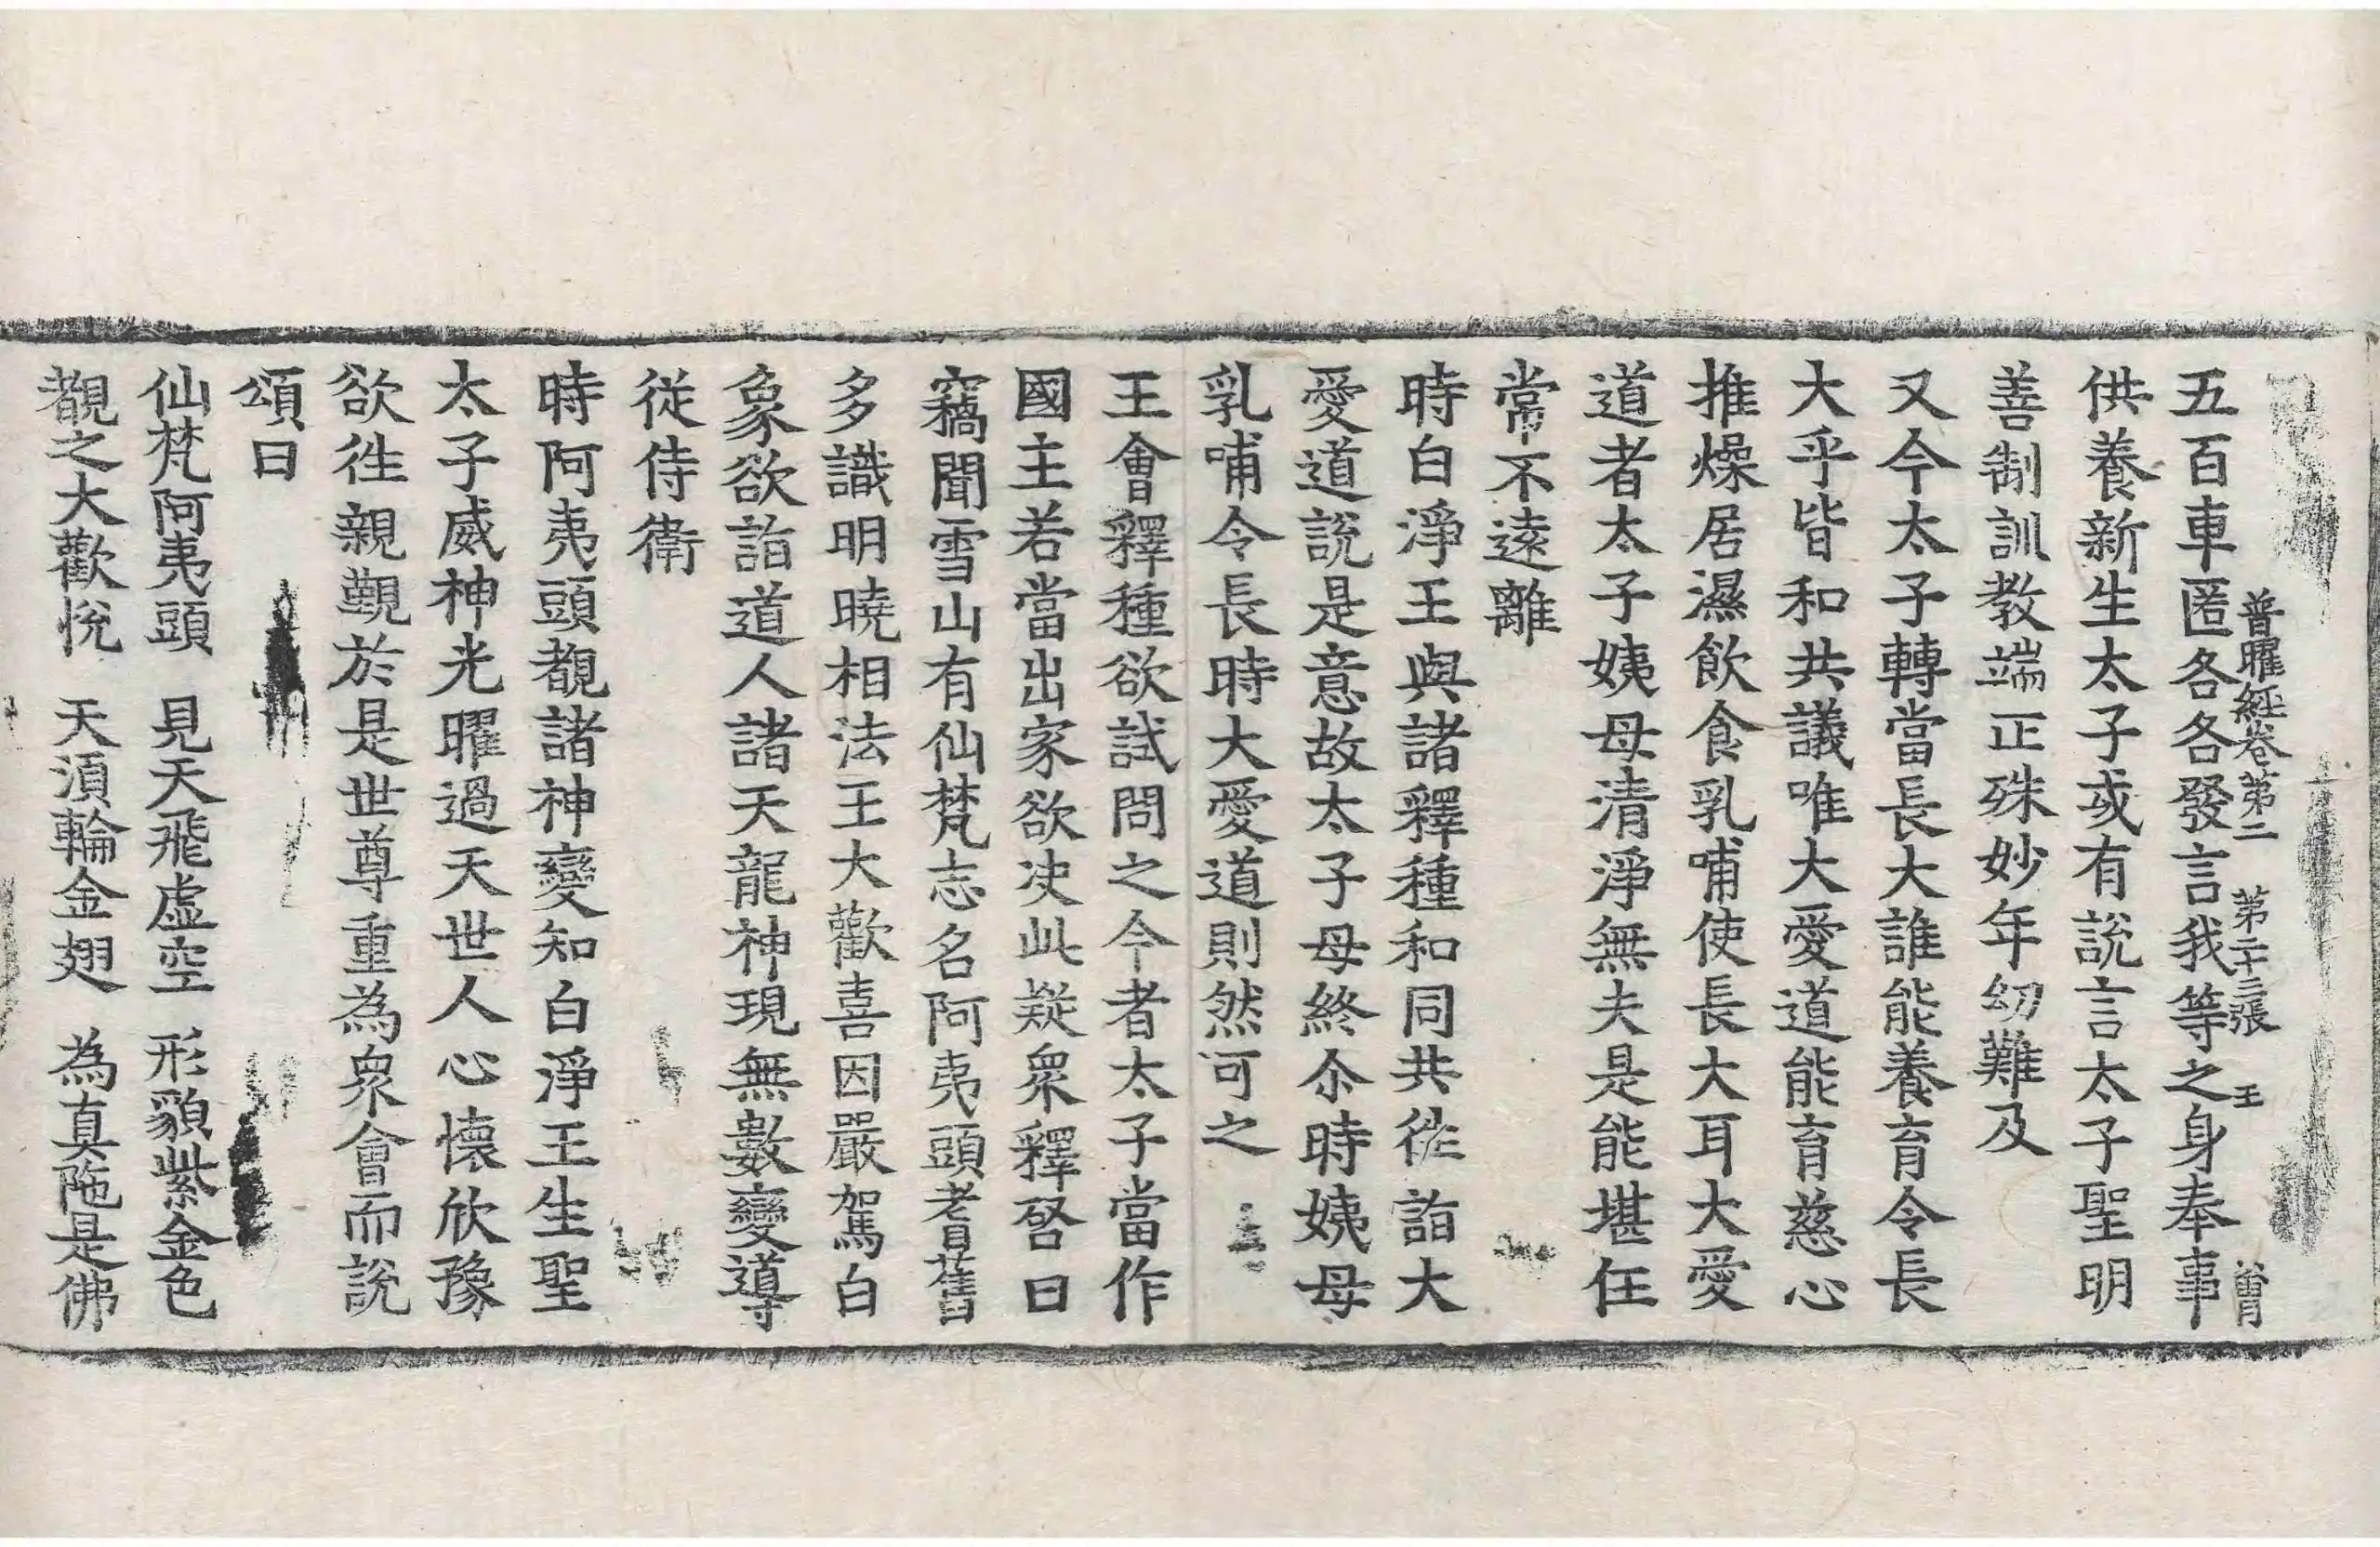 普曜經卷第二　第二十三張　王
曾
五百車匿各各發言我等之身奉事
供養新生太子或有說言太子聖明
善制訓教端正殊妙年幼難及
又今太子轉當長大誰能養育令長
大乎皆和共議唯大愛道能育慈心
推燥居濕飲食乳哺使長大耳大愛
道者太子姨母清淨無夫是能堪任
常不遠離
時白淨王與諸釋種和同共徃詣大
愛道說是意故太子母終尒時姨母
乳哺令長時大愛道則然可之
王會釋種欲試問之今者太子當作
國主若當出家欲决此疑衆釋啓曰
竊聞雪山有仙梵志名阿夷頭耆舊
多識明曉相法王大歡喜因嚴駕白
象欲詣道人諸天龍神現無數變導
從侍衛
時阿夷頭覩諸神變知白淨王生聖
太子威神光曜過天世人心懷欣豫
欲徃親觀於是世尊重為衆會而說
頌曰
仙梵阿夷頭　見天飛虛空　形貌紫金色
覩之大歡悅　天須輪金翅　為真陁是佛